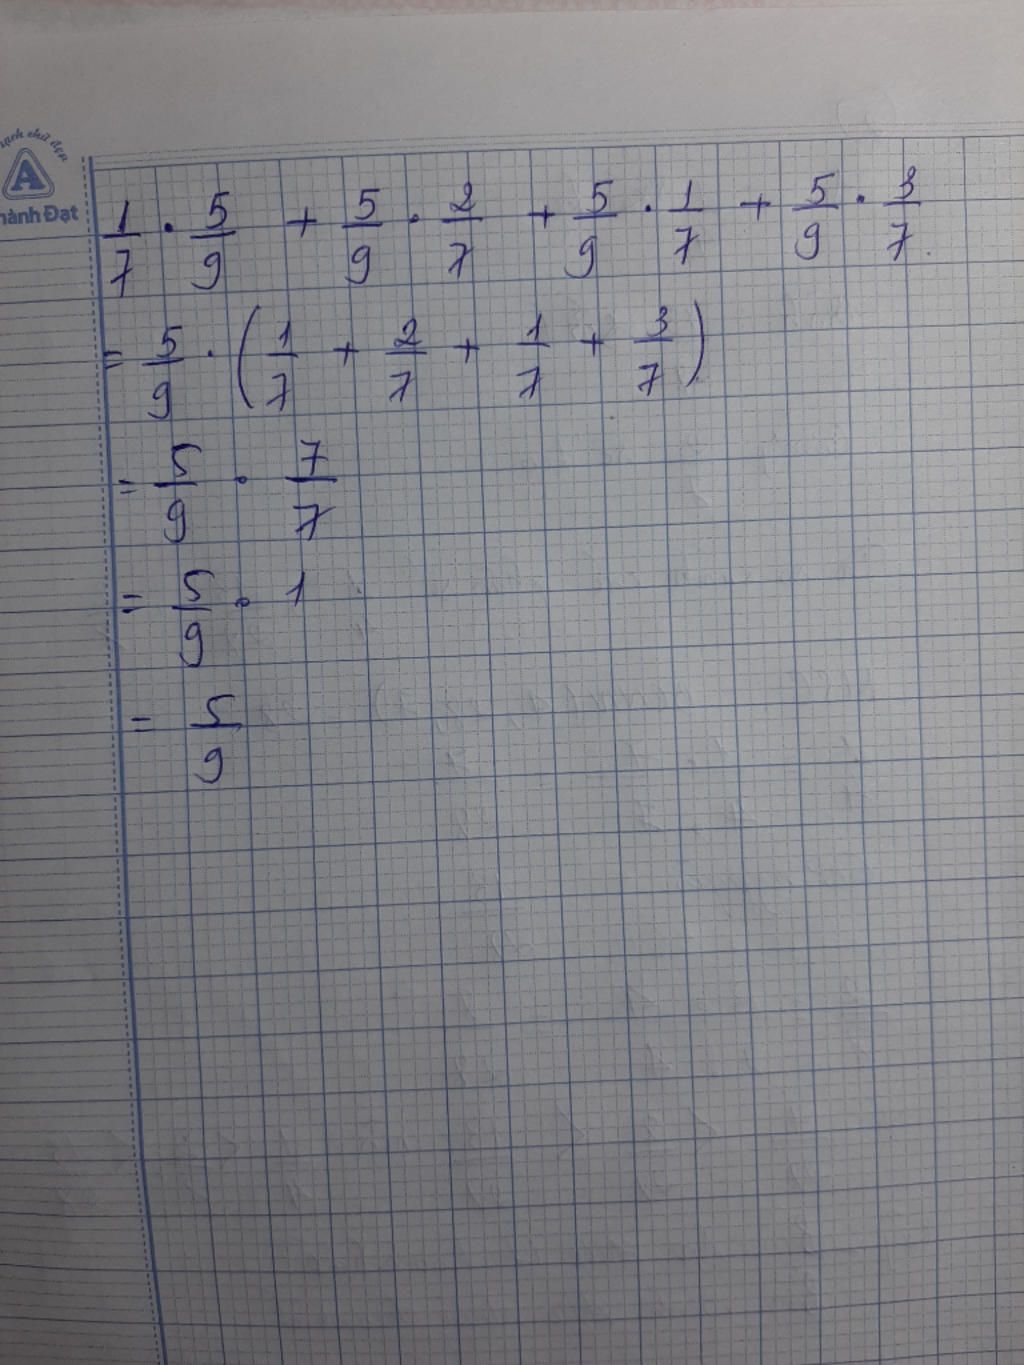 mạch chữ đẹp
A
hành Đạt
1/7 . 5/9 + 5/9 . 2/7 + 5/9 . 1/7 + 5/9 . 3/7.
= 5/9 . (1/7 + 2/7 + 1/7 + 3/7)
= 5/9 . 7/7
= 5/9 . 1
= 5/9